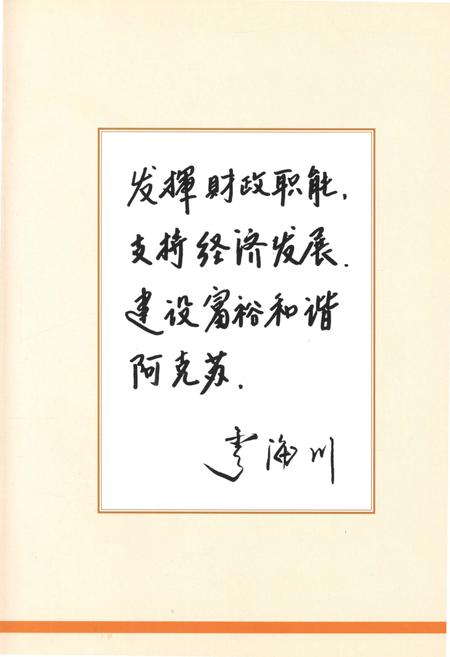 发揮財政职能，
支持经济发展．
建设富裕和谐
阿克苏．
李海川